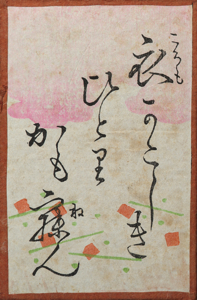 衣かたしき
ころも
ひとり
かも
寐ん
ね